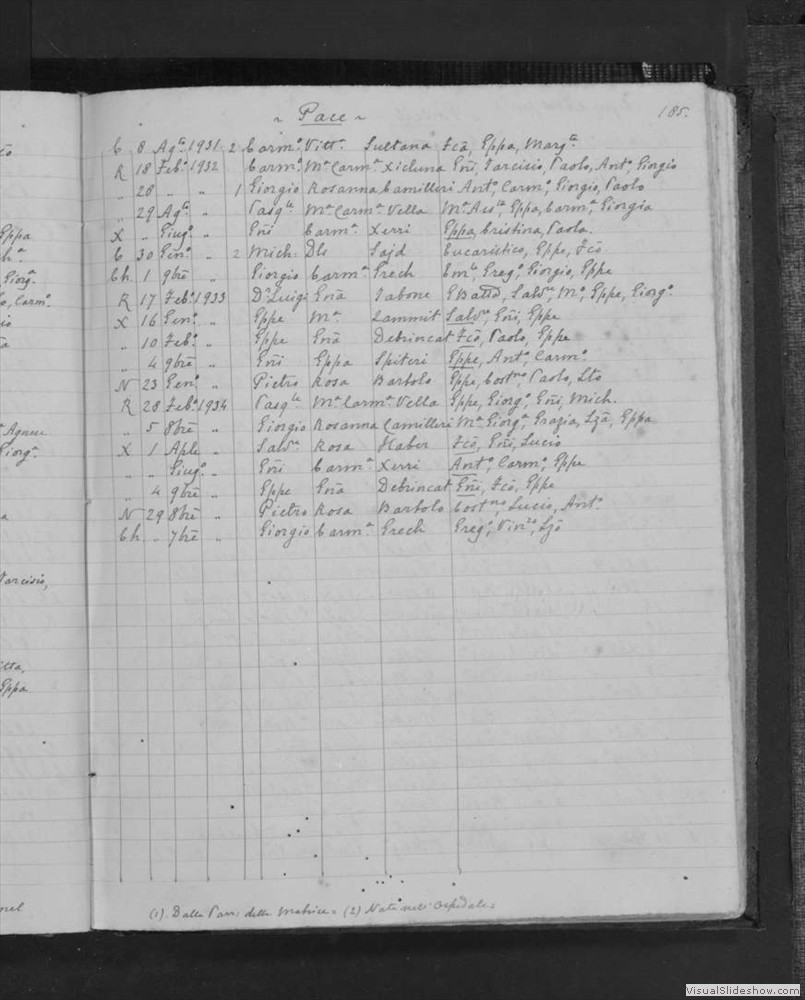 ~ Pace ~
185.
C 8 Agto 1931 2 Carmo Vitta Sultana Fcõ, Eppa, Margta
R 18 Febo 1932 Carmo Ma Carma Xicluna Eñi, Tarcisio, Paolo, Anto, Giorgio
„ 28 „ „ 1 Giorgio Rosanna Camilleri Anto, Carmo, Giorgio, Paolo
„ 29 Agto „ Pasqle Ma Carma Vella Ma Assta, Eppa, Carma, Giorgia
X „ Giugo „ Eñi Carma Xerri Eppa, Cristina, Paola.
C 30 Geno „ 2 Mich. Dls Sajd Eucaristico, Eppe, Fcõ
Ch 1 9brē „ Giorgio Carma Grech Emle, Grego, Giorgio, Eppe
R 17 Febo 1933 D'Luigi Enã Tabone GBatta, Salvre, Mo, Eppe, Giorgo
X 16 Geno „ Eppe Ma Zammit Salvre, Eñi, Eppe
„ 10 Febo „ Eppe Enã Debrincat Fcõ, Paolo, Eppe
„ 4 9brē „ Eñi Eppa Spiteri Eppe, Anto, Carmo
N 23 Geno „ Pietro Rosa Bartolo Eppe, Costno, Paolo,
R 28 Febo 1934 Pasqle Ma Carma Vella Eppe, Giorgo, Eñi, Mich.
„ 5 8brē „ Giorgio Rosanna Camilleri Ma Giorga, Grazia, Lzã, Eppa
X 1 Aple „ Salvre Rosa Haber Fcõ, Eñi, Lucio
„ „ Giugo „ Eñi Carma Xerri Anto, Carmo, Eppe
„ 4 9brē „ Eppe Enã Debrincat Eñi, Fcõ, Eppe
N 29 8brē „ Pietro Rosa Bartolo Costno, Lucio, Anto
Ch „ 7brē „ Giorgio Carma Grech Grego, Vinzo, Lzõ
(1) Dalla Parr: della Matrice = (2) Nati nell' Ospedale =
VisualSlideshow.com